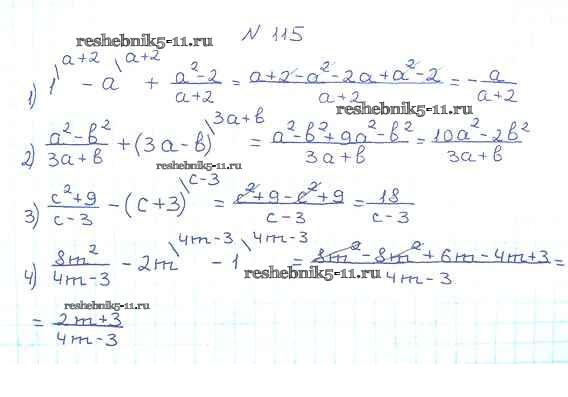 reshebnik5-11.ru
N 115
1) 1\ᵃ⁺² - a\ᵃ⁺² + (a²-2)/(a+2) = (a+2-a²-2a+a²-2)/(a+2) = -a/(a+2)
reshebnik5-11.ru
2) (a²-b²)/(3a+b) + (3a-b)\³ᵃ⁺ᵇ = (a²-b²+9a²-b²)/(3a+b) = (10a²-2b²)/(3a+b)
reshebnik5-11.ru
3) (c²+9)/(c-3) - (c+3)\ᶜ⁻³ = (c²+9-c²+9)/(c-3) = 18/(c-3)
4) 8m²/(4m-3) - 2m\⁴ᵐ⁻³ - 1\⁴ᵐ⁻³ = (8m²-8m²+6m-4m+3)/(4m-3) =
reshebnik5-11.ru
reshebnik5-11.ru
= (2m+3)/(4m-3)